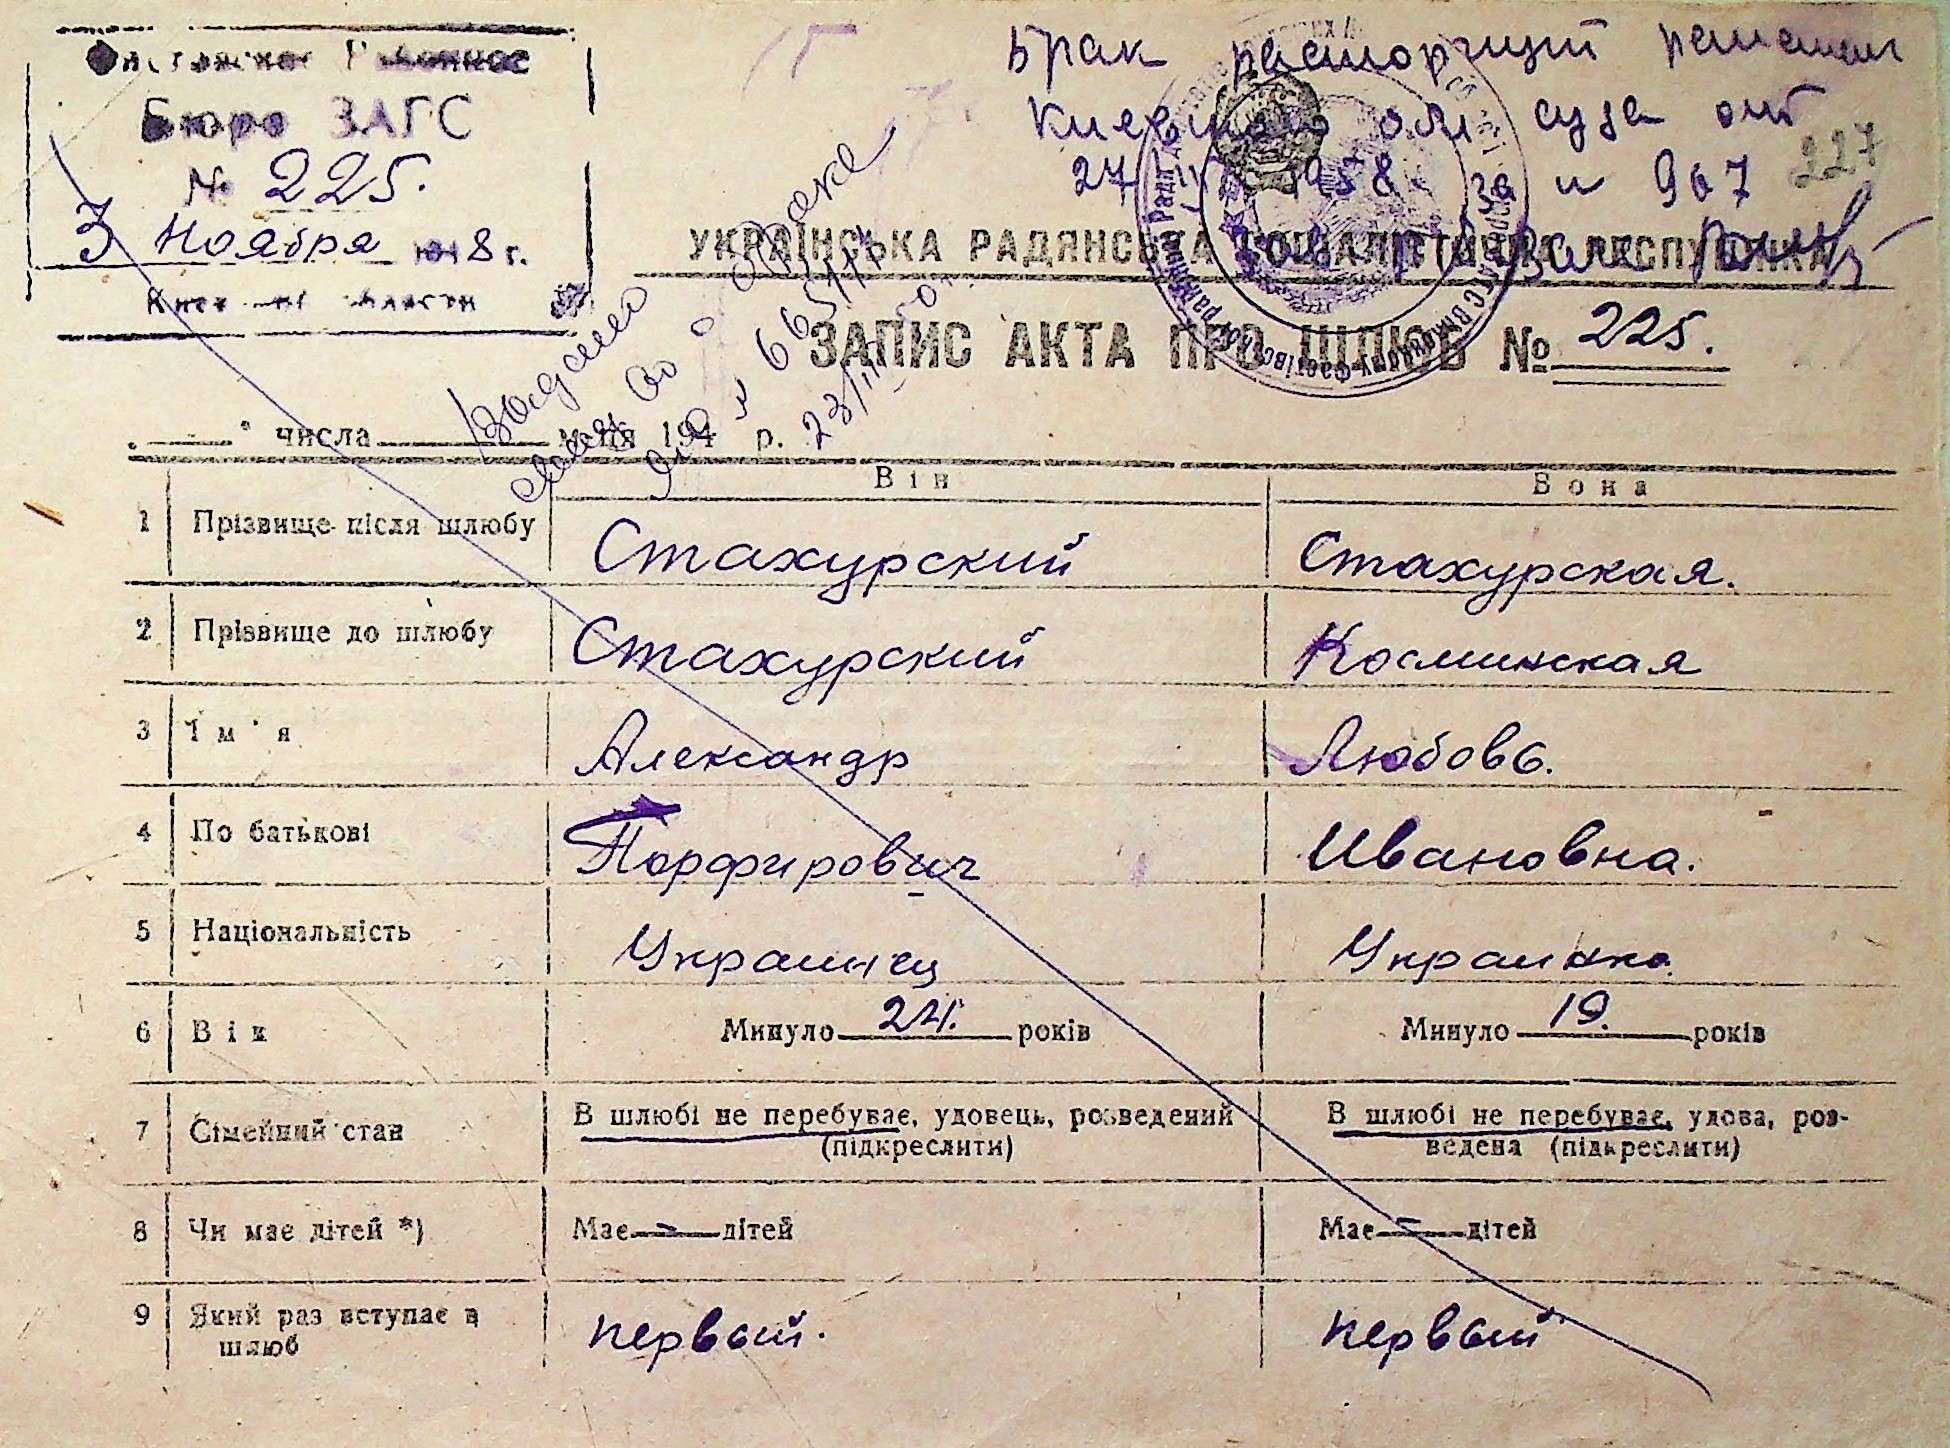 Бюро ЗАГС
№ 225.
3 Ноября 1948 г.
Брак расторгнут решением
Киевского обл суда от
27 1958 за № 967
227
УКРАЇНСЬКА РАДЯНСЬКА СОЦІАЛІСТИЧНА РЕСПУБЛІКА
ЗАПИС АКТА ПРО ШЛЮБ № 225.
Выдано
о браке
23/III
" числа місяця 194 р.
Він Вона
1 Прізвище після шлюбу Стахурский Стахурская.
2 Прізвище до шлюбу Стахурский Косминская
3 Ім'я Александр Любовь.
4 По батькові Порфирович Ивановна.
5 Національність Украинец Украинка
6 Вік Минуло 24. років Минуло 19. років
7 Сімейний стан В шлюбі не перебуває, удовець, розведений В шлюбі не перебуває, удова, роз-
(підкреслити) ведена (підкреслити)
8 Чи має дітей *) Має — дітей Має — дітей
9 Який раз вступає в первый. первый
шлюб